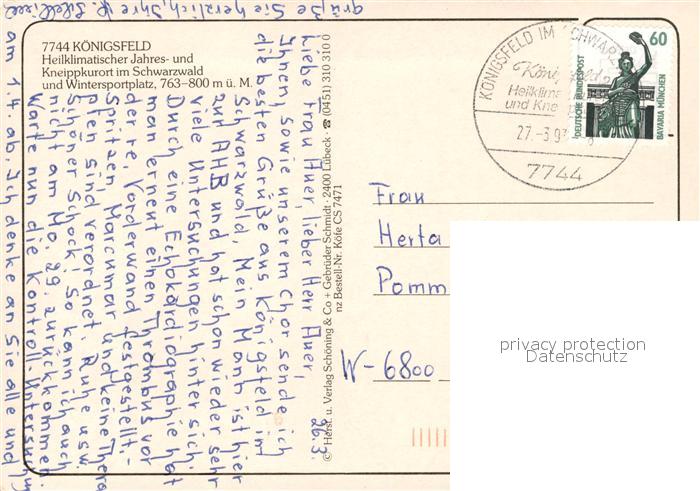 7744 KÖNIGSFELD
Heilklimatischer Jahres- und
Kneippkurort im Schwarzwald
und Wintersportplatz, 763–800 m ü. M.
26.3.
Liebe Frau Auer, lieber Herr Auer,
Ihnen, sowie unserem Chor sende ich
die besten Grüße aus Königsfeld im
Schwarzwald. Mein Mann ist hier
zur AHB und hat schon wieder sehr
viele Untersuchungen hinter sich.
Durch eine Echokardiographie hat
man erneut einen Thrombus vor
der re. Vorderwand festgestellt.-
Spritzen, Marcumar und keine Thera
pien sind verordnet. Ruhe usw.
Schöner Schock! So kann ich auch
nicht am Mo. 29. zurückkommen
Warte nun die Kontroll-Untersuchung
am 1.4. ab. Ich denke an Sie alle und
grüße Sie herzlich, Ihre
© Herst. u. Verlag Schöning & Co + Gebrüder Schmidt · 2400 Lübeck · ☎ (0451) 310 310 0
nz Bestell-Nr. Köfe CS 7471
KÖNIGSFELD IM SCHWARZ
Königsfeld
Heilklima
und Kne
27.-3.93
7744
60
DEUTSCHE BUNDESPOST
BAVARIA MÜNCHEN
Frau
Herta
Pomm
W-6800
privacy protection
Datenschutz